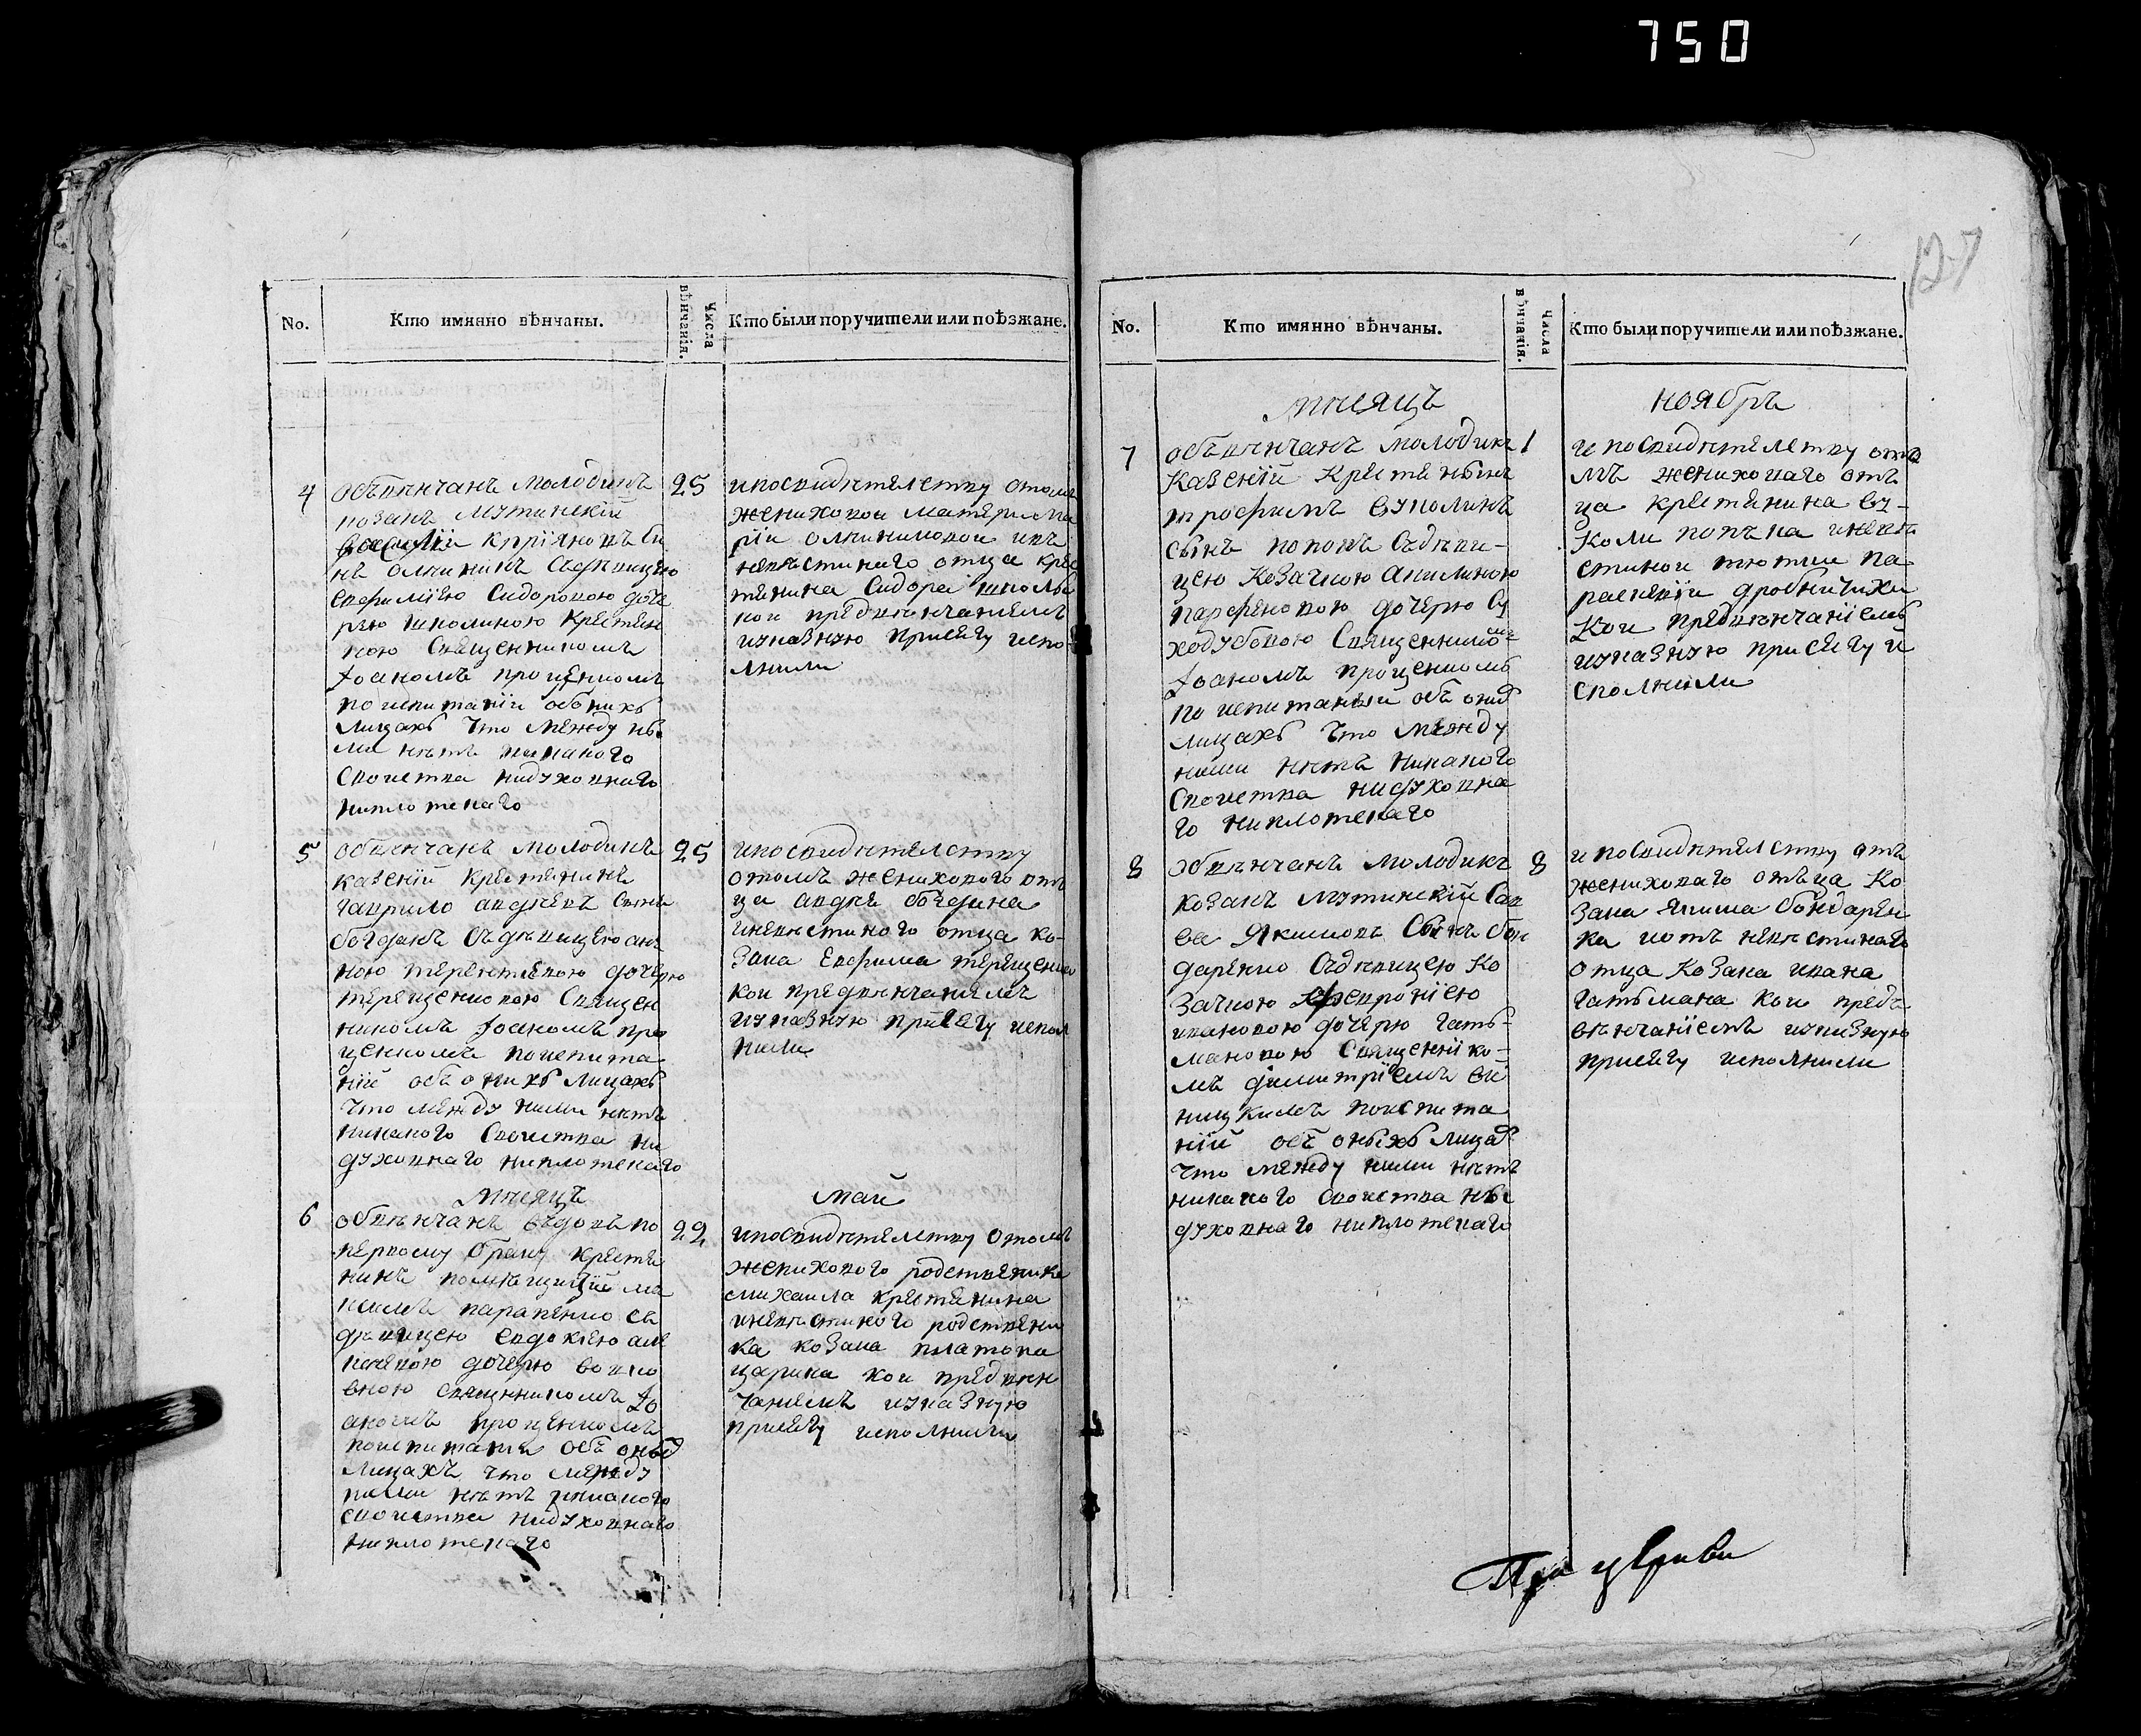 750
127
No.
Кто имянно вѣнчаны.
Числа вѣнчанія.
Кто были поручители или поѣзжане.
4
обвѣнчанъ молодикъ
козакъ мутинскій
василій
нъ олпиникъ Сдѣвицею
евфимїею Сидоровою доче
рію школиною Крестян
кою Священникомъ
Іоаномъ проценкомъ
по испитаніи обоныхъ
лицахъ что между ны
ми нѣтъ никакого
своиства нидуховнаго
ниплотскаго
25
и по свидѣтелству отомъ
жениховои матери ма
рїи ихъ
невѣстинаго отца крес
тянина Сидора школы
кои предвѣнчаніемъ
изуказную присягу испо
лнили
5
обвѣнчанъ молодикъ
казеній крестянинъ
гаврило авдѣевъ Синъ
богданъ Съдѣвицею ан
ною терентіевою дочерю
терещенковою Священ
никомъ Іоаномъ про
ценкомъ поиспита
ніи объ онихъ лицахъ
что между ними нѣтъ
никакого Своиства ни
духовнаго ниплотскаго
25
и по свидѣтелству
отомъ женихового отъ
ца авдѣя богдана
иневѣстиного отца ко-
зака Евфима терещенка
кои предвѣнчаніемъ
изуказную присягу испол
нили
мѣсяцъ
май
6
обвѣнчанъ вдовъ по
первому браку крестя
нинъ помѣщицій ма
ксимъ Съ
дѣвицею евдокіею але
ксѣевою дочерю
священникомъ Іо
аномъ проценкомъ
поиспитаніи объ оныхъ
лицахъ что между
ними нѣтъ никакого
своиства нидуховнаго
ниплотскаго
22
и по свидѣтелству отомъ
женихового родственика
михаила крестянина
иневѣстиного родствени
ка козака платона
царика кои предвѣн
чаніемъ изуказную
присягу исполнили
No.
Кто имянно вѣнчаны.
Числа вѣнчанія.
Кто были поручители или поѣзжане.
мѣсяцъ
ноябръ
7
обѣвѣнчанъ молодикъ
Казеній Крестянынъ
трофимъ
сынъ Съдѣви-
цею Козачкою Акилиною
парфеновою дочерю Су
ходубовою Священнико
Іоаномъ проценкомъ
по испитаныи объ оныхъ
лицахъ что между
ними нѣтъ никакого
Своиства нидуховна
го ниплотскаго
1
и по свидѣтелству ото
мъ женихонаго отъ
ца крестянина
иневѣ
стинои тютки па
раскевіи дробничихи
кои предвѣнчаніемъ
изуказную присягу и
сполнили
8
обвѣнчанъ молодикъ
козакъ мутинскій Сав
ва Якимовъ Сынъ бон
даренко Съдѣвицею Ко
зачкою Февроніею
ивановою дочерю гать-
мановою Священніко-
мъ димитріемъ
ницкимъ поиспита
ніи объ оныхъ лицах
что между ними нѣтъ
никакого Своиства ны
духовнаго ниплотскаго
8
и по Свидѣтелству отъ
жениховаго отъца Ко
зака Якима бондарен
ка иотъ невѣстинаго
отца Козака ивана
гатьмана кои предъ
вѣнчаніемъ изуказную
присягу исполнили